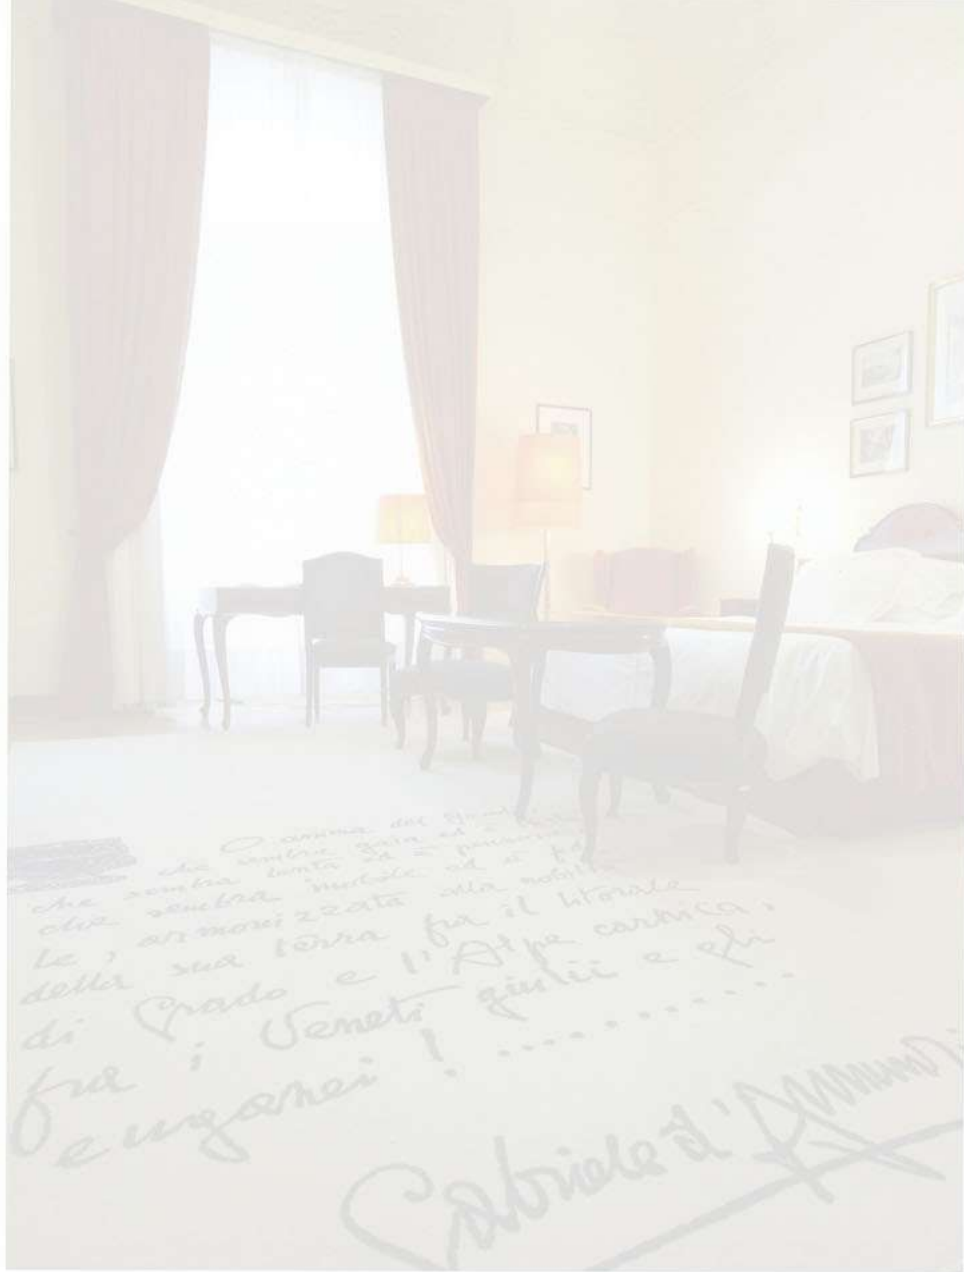 O anima del
che sembra gaia ed è
che sembra lenta ed è
che sembra immobile ed è
le, armonizzata alla nobil
della sua terra fra il litorale
di Grado e l'Alpe carnica,
fra i Veneti giulii e gli
euganei! ..........
Gabriele d'Annunzi